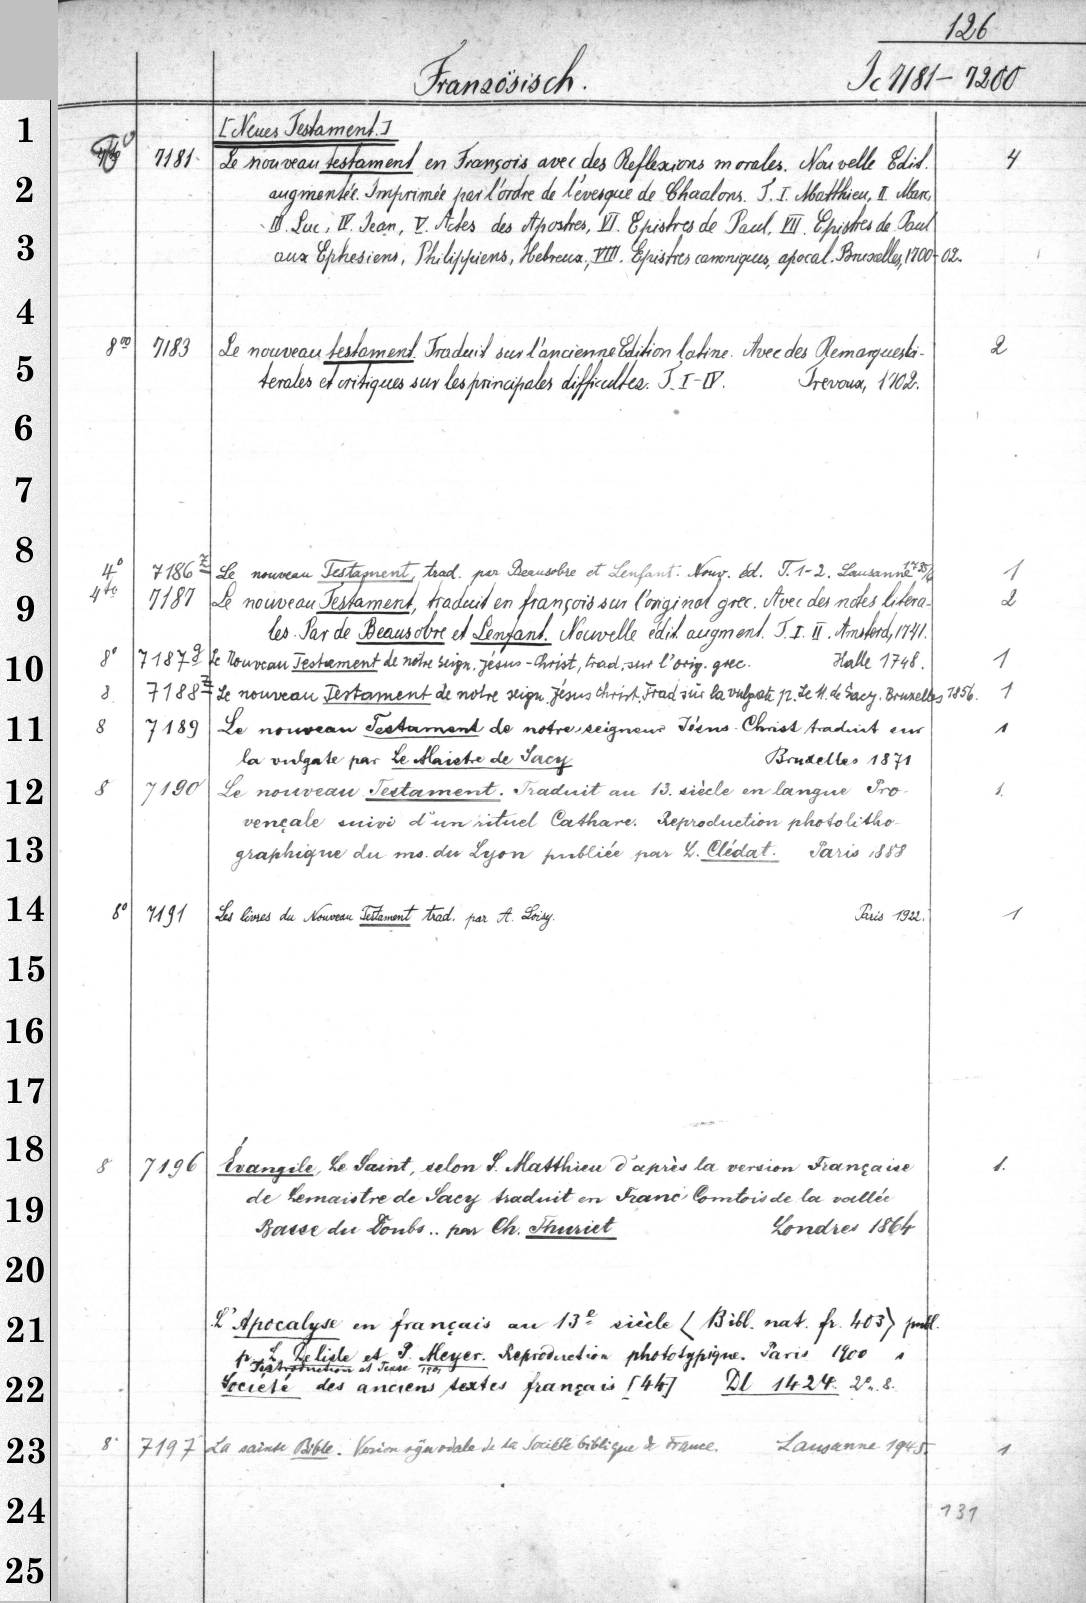 126
Französisch. Ic 7181 - 7200
1
[Neues Testament.]
7181. Le nouveau testament en François avec des Reflexions morales. Nouvelle Edit. 4
2 augmentée. Imprimée par l'ordre de l'évesque de Chaalons. T. I. Matthieu, II. Marc,
3 III. Luc, IV. Jean, V. Actes des Apostres, VI. Epistres de Paul, VII. Epistres de Paul
aux Ephesiens, Philippiens, Hebreux, VIII. Epistres canoniques, apocal. Bruxelles, 1700-02.
4
8vo 7183 Le nouveau testament. Traduit sur l'ancienne Edition latine. Avec des Remarques li- 2
5 terales et critiques sur les principales difficultez. T. I-IV. Trevoux, 1702.
6
7
8
4° 7186 z Le nouveau Testament, trad. par Beausobre et Lenfant. Nouv. éd. T. 1-2. Lausanne 1
9 4to 7187 Le nouveau Testament, traduit en françois sur l'original grec. Avec des notes litera- 2
les. Par de Beausobre et Lenfant. Nouvelle édit. augment. T. I. II. Amsterd, 1741.
10 8° 7187 g Le Nouveau Testament de nôtre seign. Jésus-Christ, trad. sur l'orig. grec. Halle 1748. 1
8 7188 z Le nouveau Testament de notre seign. Jésus Christ. Trad. sur la vulgate p. Le M. de Sacy. Bruxelles 1856. 1
11 8 7189 Le nouveau Testament de notre seigneur Jésus-Christ traduit sur 1
la vulgate par Le Maistre de Sacy Bruxelles 1871
12 8 7190 Le nouveau Testament. Traduit au 13. siècle en langue Pro- 1.
vençale suivi d'un rituel Cathare. Reproduction photolitho-
13 graphique du ms. du Lyon publiée par L. Clédat. Paris 1888
14 8° 7191 Les livres du Nouveau Testament trad. par A. Loisy. Paris 1922. 1
15
16
17
18 8 7196 Évangile, Le Saint, selon S. Matthieu d'après la version Française 1.
19 de Lemaistre de Sacy traduit en Franc Comtois de la vallée
Basse du Doubs .. par Ch. Thuriet Londres 1864
20
21 L'Apocalyse en français au 13e siècle (Bibl. nat. fr. 403) publ.
p. L. Delisle et P. Meyer. Reproduction phototypique. Paris 1900 1
Introduction et Texte 1901
22 Société des anciens textes français [44] Dl 1424. 2°. 8.
23 8° 7197 La sainte Bible. Version synodale de la Société biblique de France. Lausanne 1945. 1
24 131
25